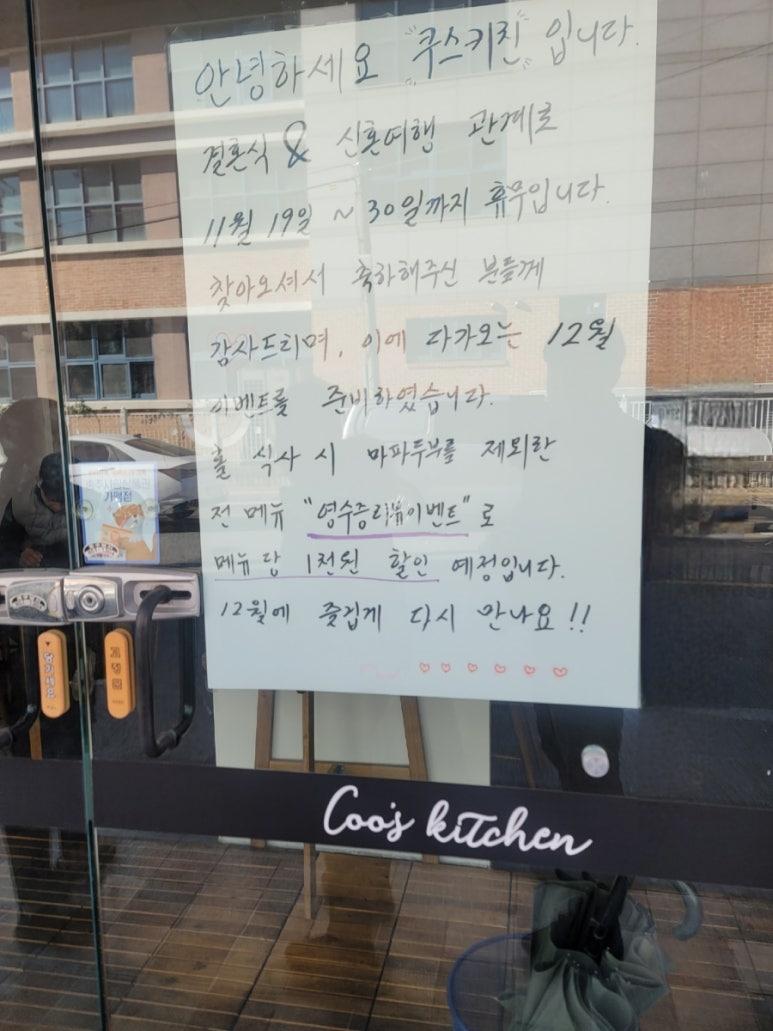 안녕하세요 "쿠스키친" 입니다.
결혼식 & 신혼여행 관계로
11월 19일 ~ 30일까지 휴무입니다.
찾아오셔서 축하해주신 분들께
감사드리며, 이에 다가오는 12월
이벤트를 준비하였습니다.
홀 식사 시 마파두부를 제외한
전 메뉴 "영수증리뷰이벤트"로
메뉴 당 1천원 할인 예정입니다.
12월에 즐겁게 다시 만나요!!
가맹점
당기세요
고정문
Coo's kitchen